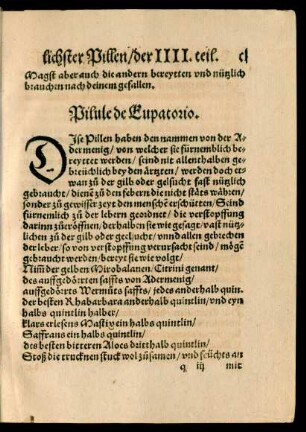 lichster Pillen/der IIII. teil. cj
Magst aber auch die andern bereytten vnd nützlich
brauchen nach deinem gefallen.
Pilule de Eupatorio.
DIse Pillen haben den nammen von der A-
dermenig/ von welcher sie fürnemblich be-
reyttet werden/ seind nit allenthalben ge-
breüchlich bey den ärtzten/ werden doch et-
wan zů der gilb oder gelsucht fast nützlich
gebraucht/ dienẽ zů den febern die nicht stäts währen/
sonder zů gewisser zeyt den menschẽ erschütten/ Seind
fürnemlich zů der lebern geordnet/ die verstopffung
darinn zů eröffnen/ derhalben sie wie gesagt/ vast nütz-
lichen zů der gilb oder geelsucht/ vnnd allen gebrechen
der leber/ so von verstopffung verursacht seind/ mögẽ
gebraucht werden/ bereyt sie wie volgt/
Nim̃ der gelben Mirobalanen/ Citrini genant/
des auffgedörrten saffts von Adermenig/
auffgedörrts Wermůts saffts/ jedes anderhalb quin.
der besten Rhabarbara anderhalb quintlin/ vnd eyn
halbs quintlin halber/
klars erlesens Mastix ein halbs quintlin/
Saffrans ein halbs quintlin/
des besten bitteren Aloes dritthalb quintlin/
Stoß die trucknen stuck wol zůsamen/ vnd feüchts an
q iij mit